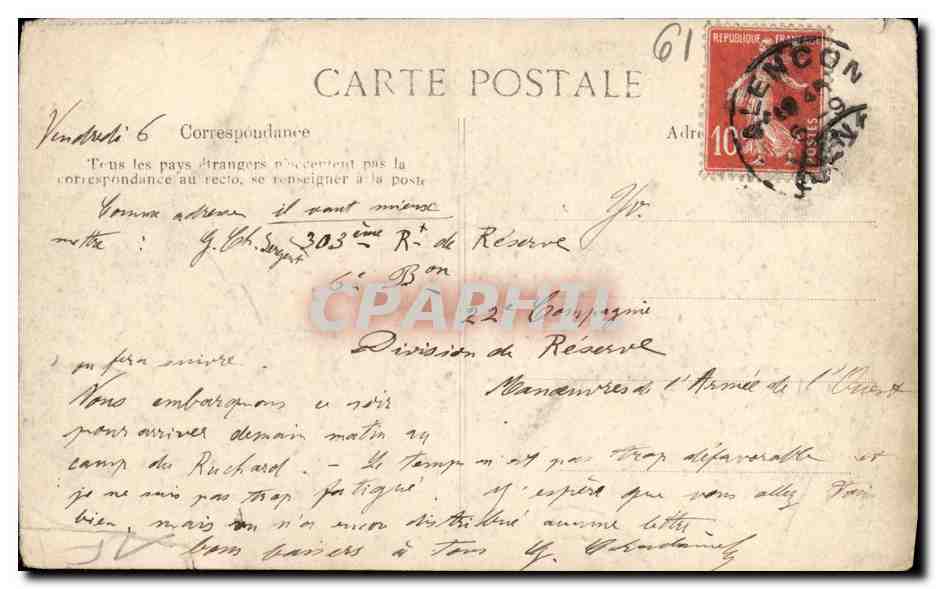 61
RÉPUBLIQUE FRANÇAISE
10
POSTES
ALENCON
ORNE
CARTE POSTALE
Vendredi 6 Correspondance Adre
Tous les pays étrangers n'acceptent pas la
correspondance au recto, se renseigner à la poste
Comme adresse il vaut mieux
mettre : G. Ch. Sergent 303ème Rt de Réserve
6e Bon
22e Compagnie
Division de Réserve
Manœuvres de l'Armée de l'Ouest
on fera suivre.
Nous embarquons ce soir
pour arriver demain matin au
camp du Ruchard. - Le temps n'est pas trop défavorable et
je ne suis pas trop fatigué. J'espère que vous allez tous
bien, mais on n'a encore distribué aucune lettre
bons baisers à tous G.
CPAPHIL